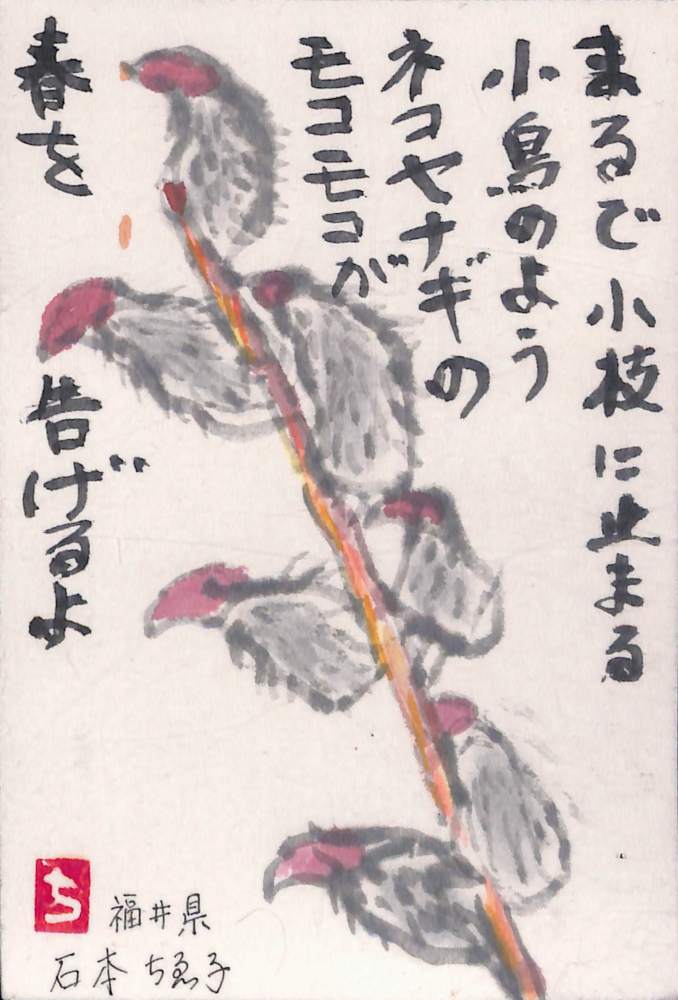 まるで小枝に止まる
小鳥のよう
ネコヤナギの
モコモコが
春を
告げるよ
ち
福井県
石本ちゑ子